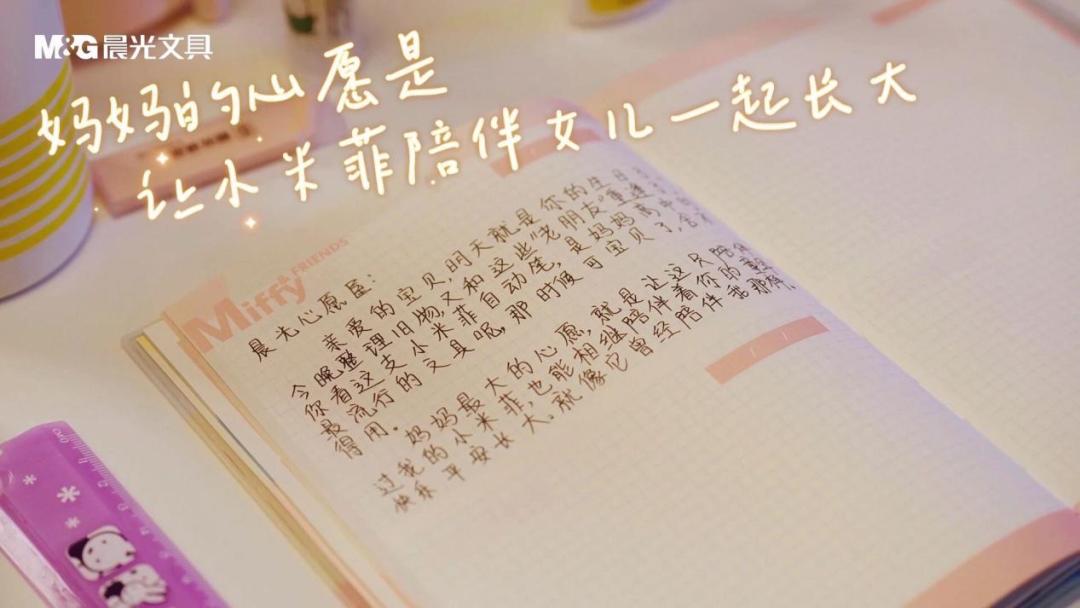 M&G晨光文具
妈妈的心愿是
让小米菲陪伴女儿一起长大
Miffy FRIENDS
晨光心愿屋：
亲爱的宝贝，明天就是你的生日
今晚整理旧物，又和这些“老朋友”重逢
你看这支小米菲自动笔，是妈妈高中
最流行的文具呢，那时候可宝贝了，舍不
得用。
妈妈最大的心愿，就是让这只陪伴
过我的小米菲也能相继陪伴着你的
快乐平安长大。就像它曾经陪伴我那样。